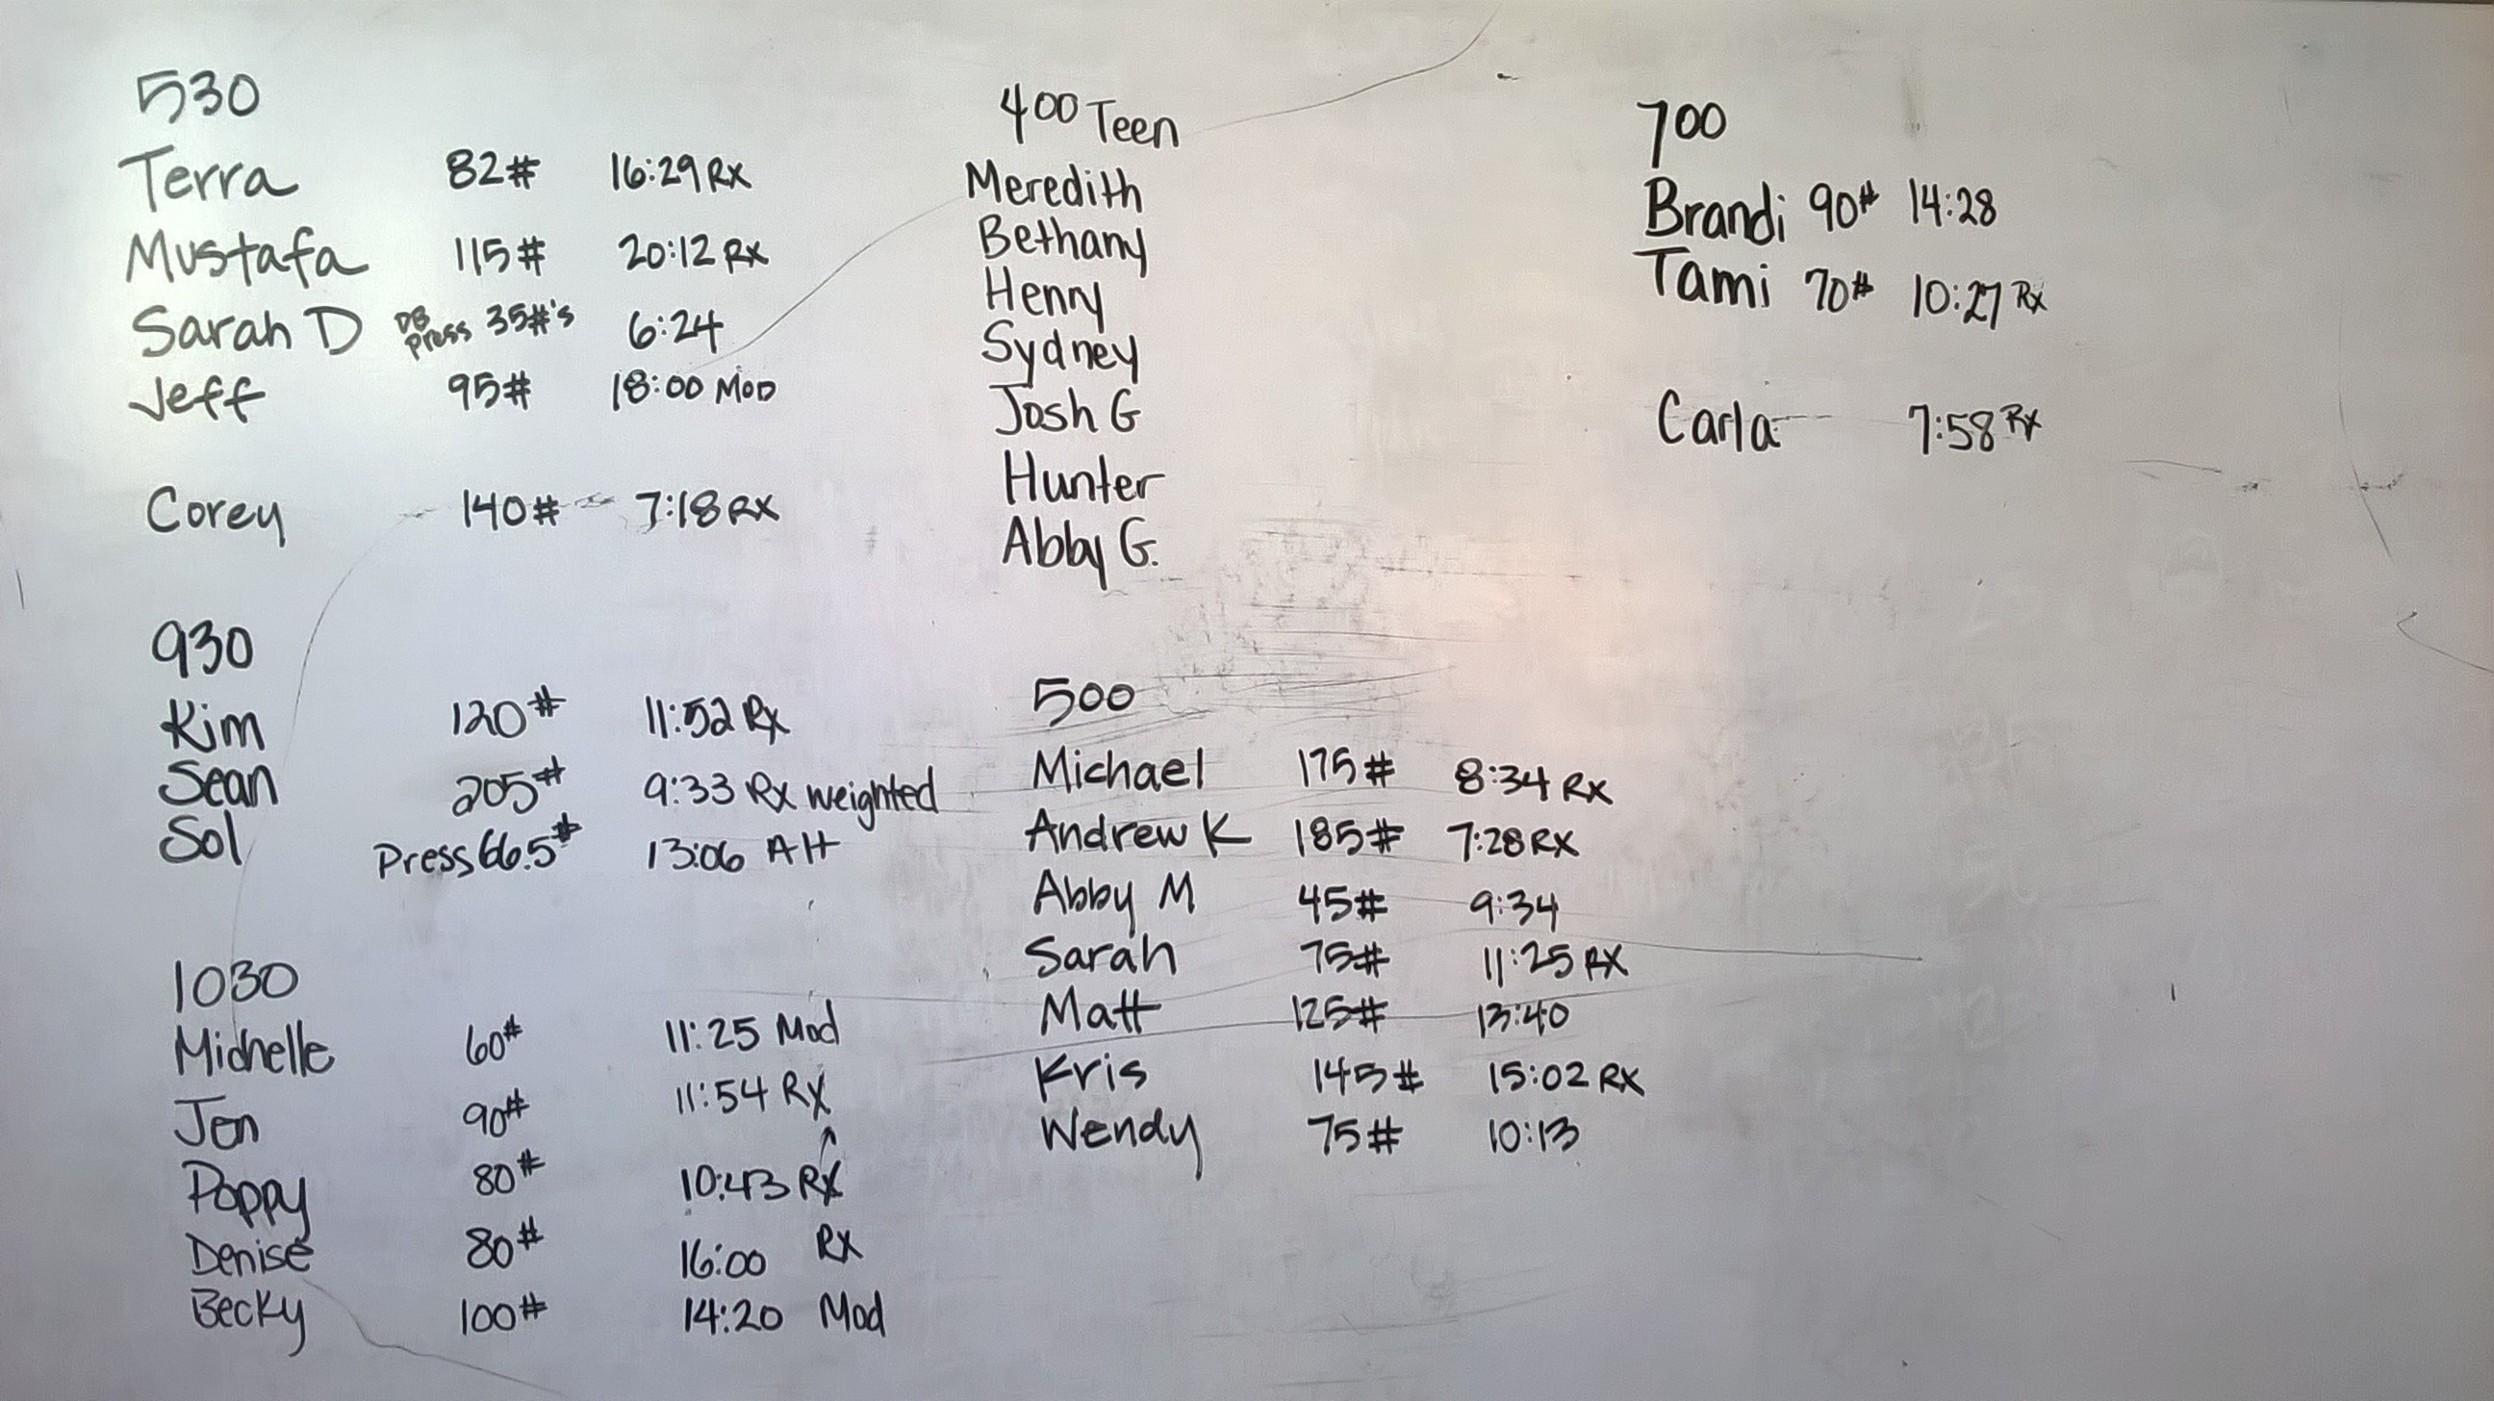 530
Terra 82# 16:29 Rx
Mustafa 115# 20:12 Rx
Sarah D DB Press 35#'s 6:24
Jeff 95# 18:00 Mod
Corey 140# 7:18 Rx
930
Kim 120# 11:52 Rx
Sean 205# 9:33 Rx weighted
Sol Press 66.5# 13:06 Alt
1030
Michelle 60# 11:25 Mod
Jen 90# 11:54 Rx
Poppy 80# 10:43 Rx
Denise 80# 16:00 Rx
Becky 100# 14:20 Mod
400 Teen
Meredith
Bethany
Henny
Sydney
Josh G
Hunter
Abby G.
500
Michael 175# 8:34 Rx
Andrew K 185# 7:28 Rx
Abby M 45# 9:34
Sarah 75# 11:25 Rx
Matt 125# 13:40
Kris 145# 15:02 Rx
Wendy 75# 10:13
700
Brandi 90# 14:28
Tami 70# 10:27 Rx
Carla 7:58 Rx